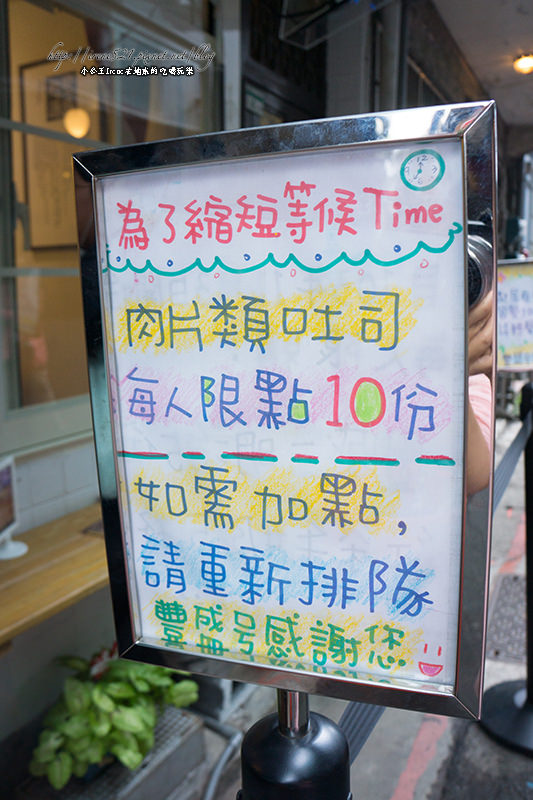 http://irene521.pixnet.net/blog
小公主Irene去地球的吃喝玩樂
為了縮短等候Time
肉片類吐司
每人限點10份
如需加點,
請重新排隊
豐盛号感謝您